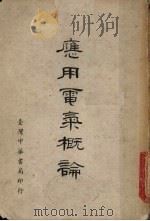 應用電氣概論
臺灣中華書局印行